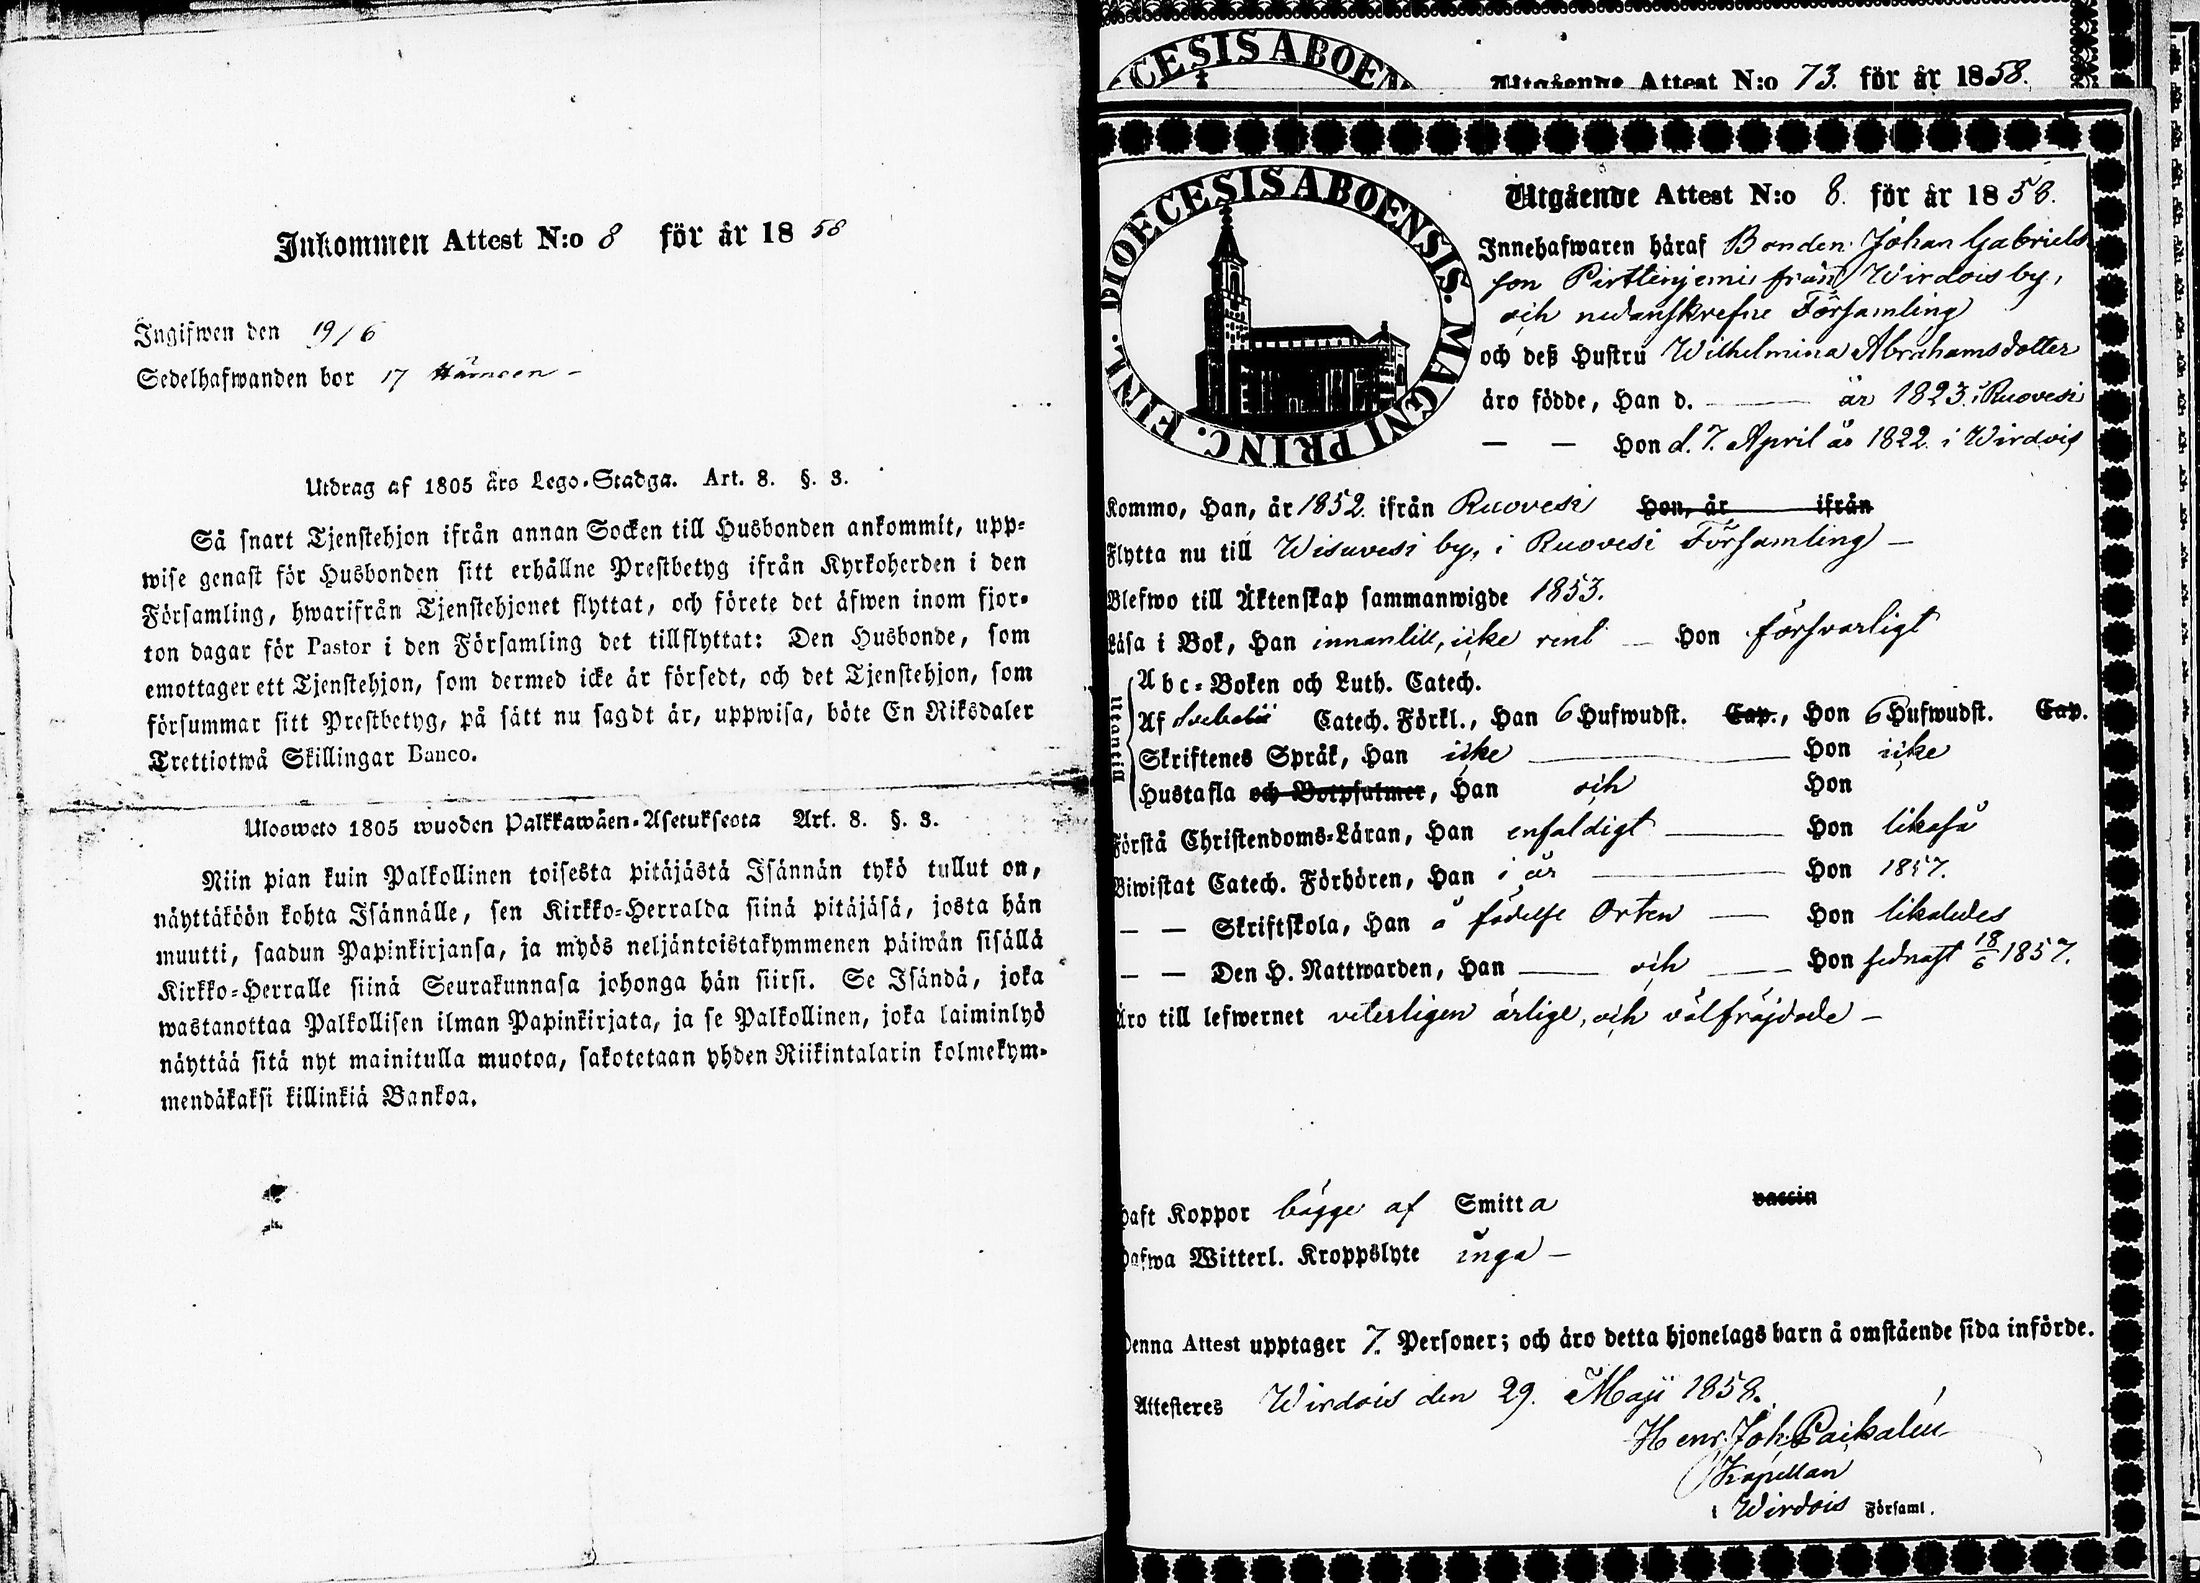 Inkommen Attest N:o 8 för år 1858
Ingifwen den 19/6
Sedelhafwanden bor 17
Utdrag af 1805 års Lego-Stadga. Art. 8. §. 3.
Så snart Tjenstehjon ifrån annan Socken till Husbonden ankommit, upp-
wise genast för Husbonden sitt erhållne Prestbetyg ifrån Kyrkoherden i den
Församling, hwarifrån Tjenstehjonet flyttat, och förete det äfwen inom fjor-
ton dagar för Pastor i den Församling det tillflyttat: Den Husbonde, som
emottager ett Tjenstehjon, som dermed icke är försedt, och det Tjenstehjon, som
försummar sitt Prestbetyg, på sätt nu sagdt är, uppwisa, böte En Riksdaler
Trettiotwå Skillingar Banco.
Ulosweto 1805 wuoden Palkkawäen-Asetuksesta Art. 8. §. 3.
Niin pian kuin Palkollinen toisesta pitäjästä Isännän tykö tullut on,
näyttäköön kohta Isännälle, sen Kirkko-Herralda siinä pitäjäsä, josta hän
muutti, saadun Papinkirjansa, ja myös neljäntoistakymmenen päiwän sisällä
Kirkko-Herralle siinä Seurakunnasa johonga hän siirsi. Se Isändä, joka
wastanottaa Palkollisen ilman Papinkirjata, ja se Palkollinen, joka laiminlyö
näyttää sitä nyt mainitulla muotoa, sakotetaan yhden Riikintalarin kolmekym-
mendäkaksi killinkiä Bankoa.
CESIS ABOEN
Utgående Attest N:o 73. för år 1858.
DIOECESIS ABOENSIS. MAGNI PRINC. FINL.
Utgående Attest N:o 8. för år 1858.
Innehafwaren häraf Bonden Johan Gabriels
son Pirttiniemi från Wirdois by,
och nedanskrefne Församling
och deß Hustru Wilhelmina Abrahamsdotter
äro födde, Han d. — år 1823. i Ruovesi
— — Hon d. 7. April år 1822. i Wirdois
Kommo, Han, år 1852. ifrån Ruovesi Hon, år ifrån
Flytta nu till Wisuvesi by, i Ruovesi Församling —
Blefwo till Äktenskap sammanwigde 1853.
Läsa i Bok, Han innantill, icke rent — Hon försvarligt
Utantid
Abc-Boken och Luth. Catech.
Af Svebelii Catech. Förkl., Han 6 Hufwudst. Cap., Hon 6 Hufwudst. Cap.
Skriftenes Språk, Han icke — Hon icke
Hustafla och Botpsalmer, Han och Hon
Förstå Christendoms-Läran, Han enfaldigt — Hon likaså
Biwistat Catech. Förhören, Han i år — Hon 1857.
— — Skriftskola, Han å födelse Orten — Hon likaledes
— — Den H. Nattwarden, Han — och — Hon sednast 18/6 1857.
Äro till lefwernet veterligen ärlige, och välfräjdade —
Haft Koppor bägge af Smitta vaccin
Hafwa Witterl. Kroppslyte inga —
Denna Attest upptager 7. Personer; och äro detta hjonelags barn å omstående sida införde.
Attesteres Wirdois den 29. Maji 1858.
Henr. Joh. Paikalén
Kapellan
i Wirdois Församl.